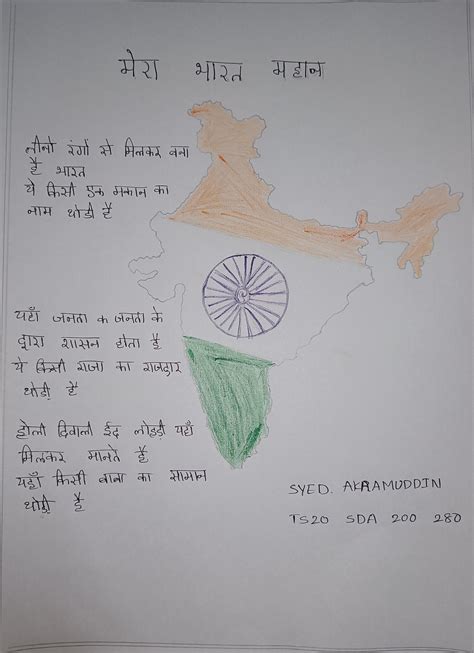 मेरा भारत महान
तीनो रंगों से मिलकर बना
है भारत
ये किसी एक मकान का
नाम थोडी है
यहाँ जनता क जनता के
द्वारा शासन होता है
ये किसी राजा का राजद्वार
थोडी है
होली दिवाली ईद लोहडी यहाँ
मिलकर मानते है
यहाँ किसी बाबा का सामान
थोडी है
SYED. AKRAMUDDIN
TS20 SDA 200 280